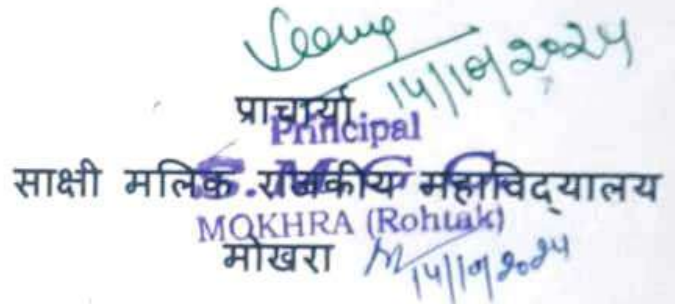 14/10/2024
प्राचार्या
Principal
साक्षी मलिक राजकीय महाविद्यालय
S.M.G.C.
MOKHRA (Rohtak)
मोखरा
14/10/2024